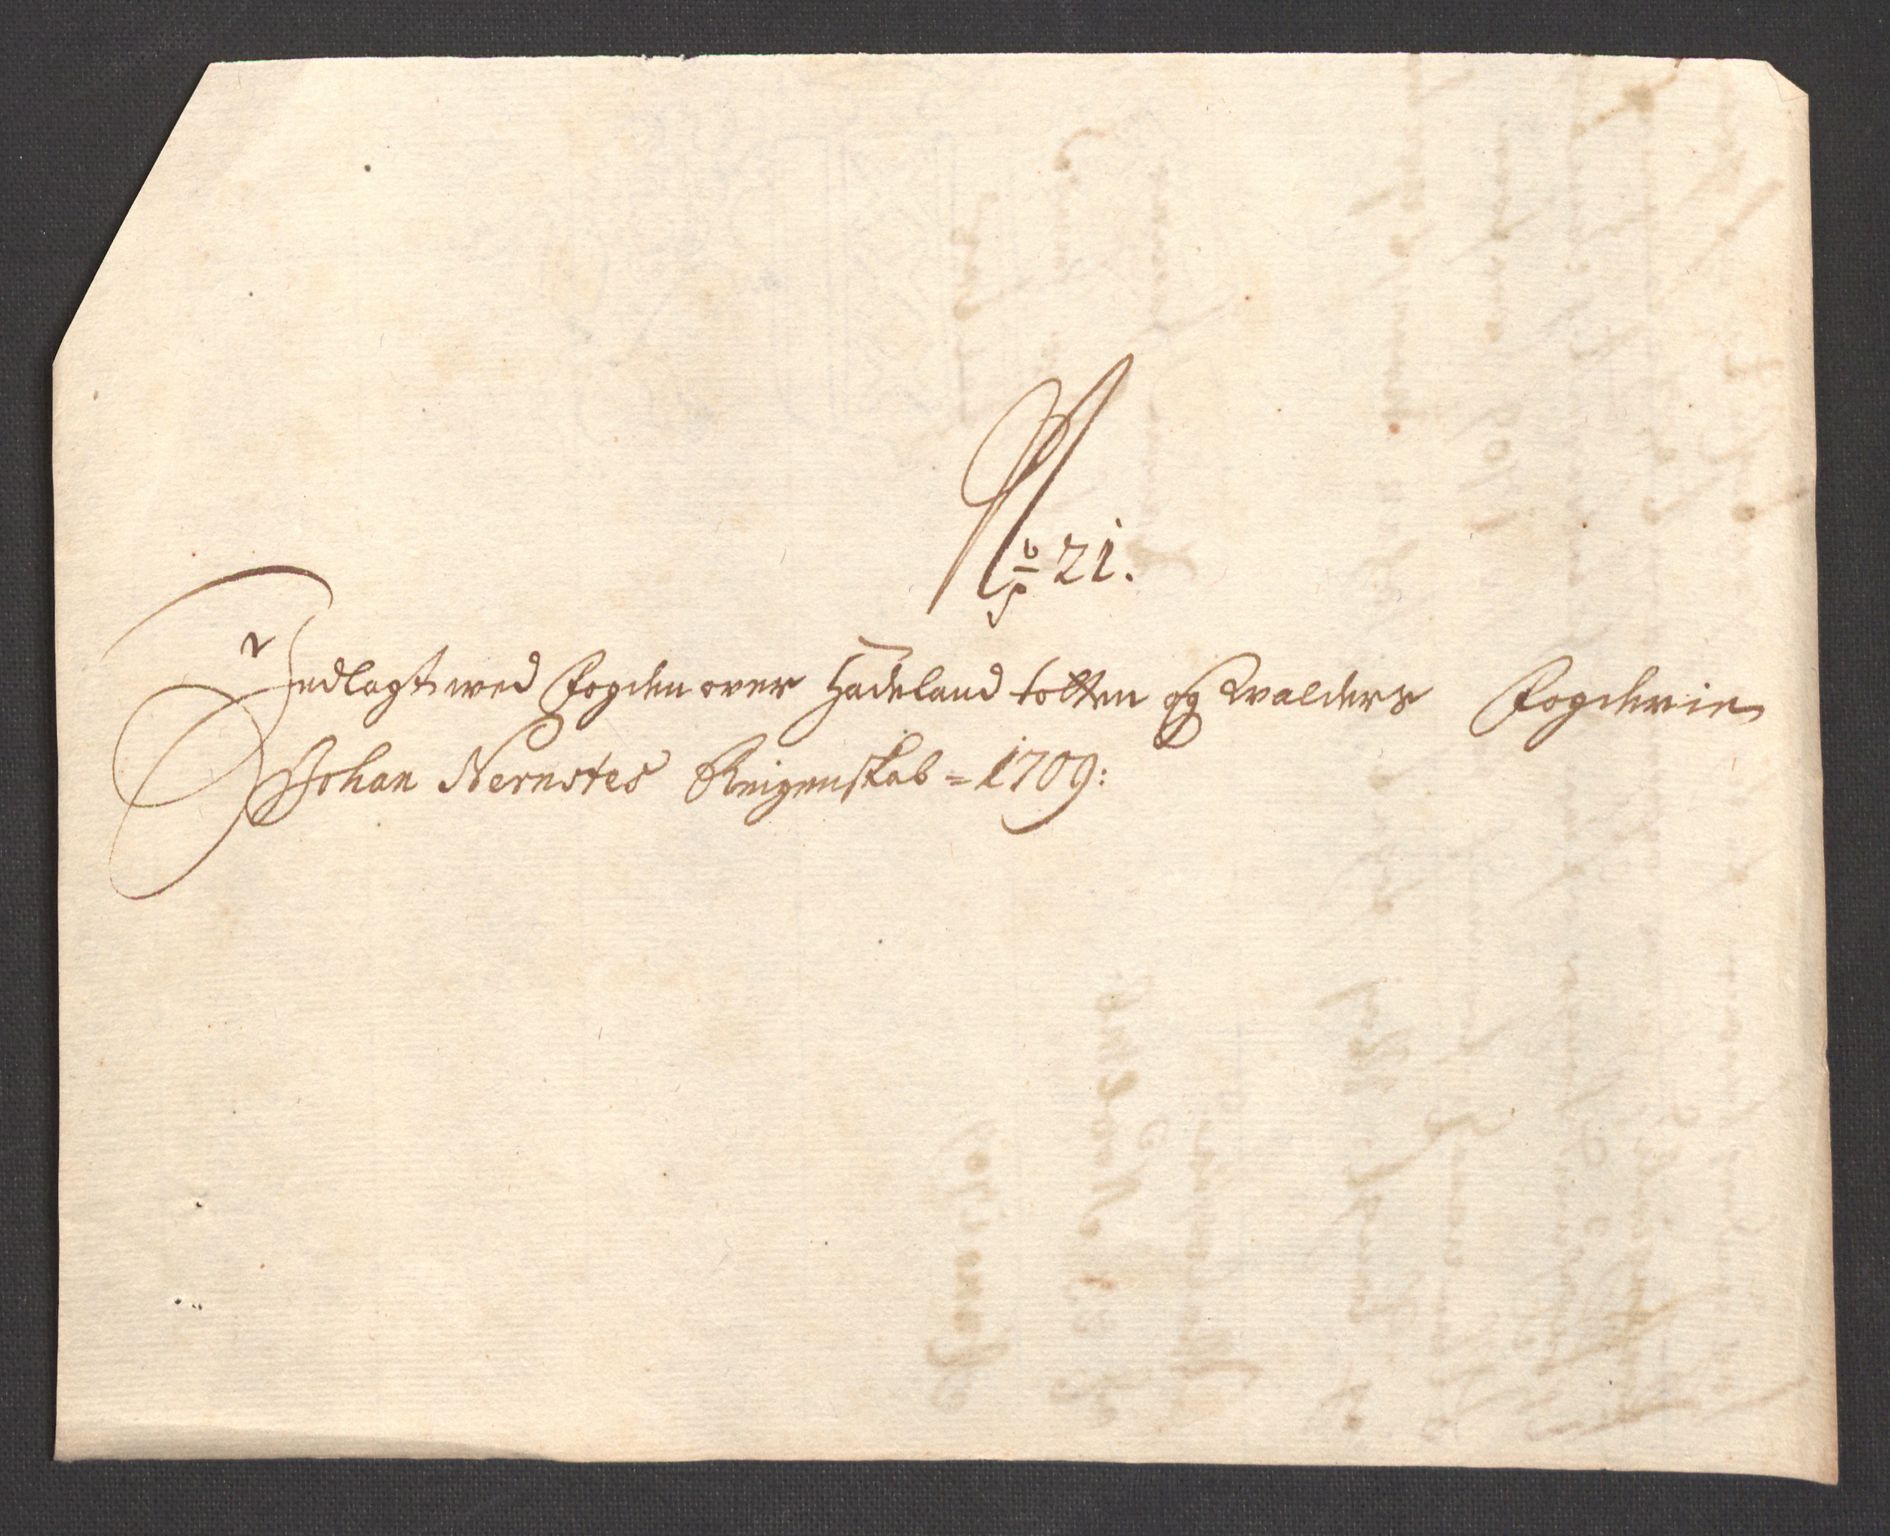 No 21.
Indlagt wed Fogden over Hadeland totten og walders Fogderie
Johan Nernstes Reigenskab = 1709: